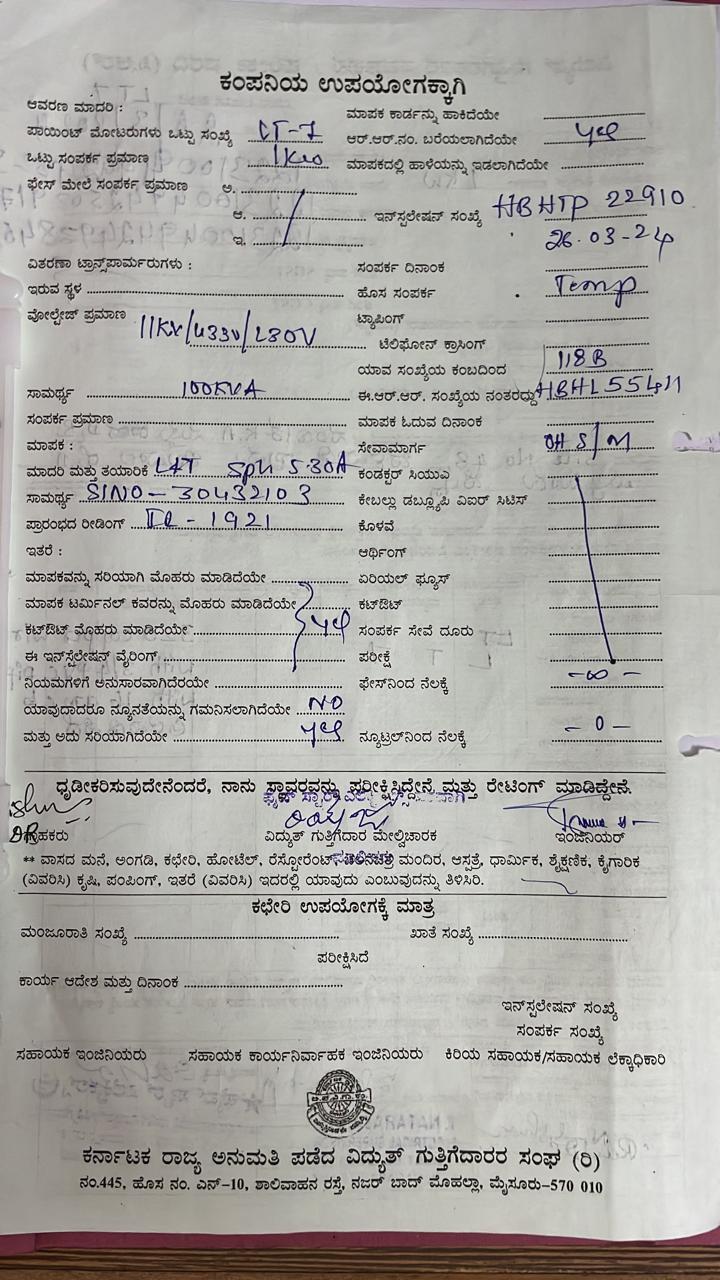 ಕಂಪನಿಯ ಉಪಯೋಗಕ್ಕಾಗಿ
ಆವರಣ ಮಾದರಿ : ಮಾಪಕ ಕಾರ್ಡನ್ನು ಹಾಕಿದೆಯೇ
ಪಾಯಿಂಟ್ ಮೋಟರುಗಳು ಒಟ್ಟು ಸಂಖ್ಯೆ LT-7 ಆರ್.ಆರ್.ನಂ. ಬರೆಯಲಾಗಿದೆಯೇ yes
ಒಟ್ಟು ಸಂಪರ್ಕ ಪ್ರಮಾಣ 1Kw ಮಾಪಕದಲ್ಲಿ ಹಾಳೆಯನ್ನು ಇಡಲಾಗಿದೆಯೇ
ಫೇಸ್ ಮೇಲೆ ಸಂಪರ್ಕ ಪ್ರಮಾಣ ಅ.
ಆ. ಇನ್‌ಸ್ಟಲೇಷನ್ ಸಂಖ್ಯೆ HBHTP 22910
ಇ. 26.03-24
ವಿತರಣಾ ಟ್ರಾನ್ಸ್‌ಪಾರ್ಮರುಗಳು : ಸಂಪರ್ಕ ದಿನಾಂಕ
ಇರುವ ಸ್ಥಳ ಹೊಸ ಸಂಪರ್ಕ Temp
ವೋಲ್ಟೇಜ್ ಪ್ರಮಾಣ 11KV/433V/230V ಟ್ಯಾಪಿಂಗ್
ಟೆಲಿಫೋನ್ ಕ್ರಾಸಿಂಗ್
ಯಾವ ಸಂಖ್ಯೆಯ ಕಂಬದಿಂದ 118B
ಸಾಮರ್ಥ್ಯ 100KVA ಈ.ಆರ್.ಆರ್. ಸಂಖ್ಯೆಯ ನಂತರದ್ದು HBHL55411
ಸಂಪರ್ಕ ಪ್ರಮಾಣ ಮಾಪಕ ಓದುವ ದಿನಾಂಕ
ಮಾಪಕ : ಸೇವಾಮಾರ್ಗ OH S/M
ಮಾದರಿ ಮತ್ತು ತಯಾರಿಕೆ L&T Sph 5-30A ಕಂಡಕ್ಟರ್ ಸಿಯುಎ
ಸಾಮರ್ಥ್ಯ SlNO-30432103 ಕೇಬಲ್ಲು ಡಬ್ಲ್ಯೂಪಿ ವಿಐರ್ ಸಿಟಿಸ್
ಪ್ರಾರಂಭದ ರೀಡಿಂಗ್ IR-1921 ಕೊಳವೆ
ಇತರೆ : ಆರ್ಥಿಂಗ್
ಮಾಪಕವನ್ನು ಸರಿಯಾಗಿ ಮೊಹರು ಮಾಡಿದೆಯೇ ಏರಿಯಲ್ ಫ್ಯೂಸ್
ಮಾಪಕ ಟರ್ಮಿನಲ್ ಕವರನ್ನು ಮೊಹರು ಮಾಡಿದೆಯೇ ಕಟ್‌ಔಟ್
ಕಟ್‌ಔಟ್ ಮೊಹರು ಮಾಡಿದೆಯೇ yes ಸಂಪರ್ಕ ಸೇವೆ ದೂರು
ಈ ಇನ್‌ಸ್ಟಲೇಷನ್ ವೈರಿಂಗ್ ಪರೀಕ್ಷೆ
ನಿಯಮಗಳಿಗೆ ಅನುಸಾರವಾಗಿದೆರಯೇ ಫೇಸ್‌ನಿಂದ ನೆಲಕ್ಕೆ -∞-
ಯಾವುದಾದರೂ ನ್ಯೂನತೆಯನ್ನು ಗಮನಿಸಲಾಗಿದೆಯೇ NO
ಮತ್ತು ಅದು ಸರಿಯಾಗಿದೆಯೇ yes ನ್ಯೂಟ್ರಲ್‌ನಿಂದ ನೆಲಕ್ಕೆ -0-
ಧೃಡೀಕರಿಸುವುದೇನೆಂದರೆ, ನಾನು ಸ್ಥಾವರವನ್ನು ಪರೀಕ್ಷಿಸಿದ್ದೇನೆ ಮತ್ತು ರೇಟಿಂಗ್ ಮಾಡಿದ್ದೇನೆ.
ಗ್ರಾಹಕರು ವಿದ್ಯುತ್ ಗುತ್ತಿಗೆದಾರ ಮೇಲ್ವಿಚಾರಕ ಇಂಜಿನಿಯರ್
** ವಾಸದ ಮನೆ, ಅಂಗಡಿ, ಕಛೇರಿ, ಹೋಟೆಲ್, ರೆಸ್ಟೋರೆಂಟ್, ಚಲನಚಿತ್ರ ಮಂದಿರ, ಆಸ್ಪತ್ರೆ, ಧಾರ್ಮಿಕ, ಶೈಕ್ಷಣಿಕ, ಕೈಗಾರಿಕ
(ವಿವರಿಸಿ) ಕೃಷಿ, ಪಂಪಿಂಗ್, ಇತರೆ (ವಿವರಿಸಿ) ಇದರಲ್ಲಿ ಯಾವುದು ಎಂಬುವುದನ್ನು ತಿಳಿಸಿರಿ.
ಕಛೇರಿ ಉಪಯೋಗಕ್ಕೆ ಮಾತ್ರ
ಮಂಜೂರಾತಿ ಸಂಖ್ಯೆ ಖಾತೆ ಸಂಖ್ಯೆ
ಪರೀಕ್ಷಿಸಿದೆ
ಕಾರ್ಯ ಆದೇಶ ಮತ್ತು ದಿನಾಂಕ
ಇನ್‌ಸ್ಟಲೇಷನ್ ಸಂಖ್ಯೆ
ಸಂಪರ್ಕ ಸಂಖ್ಯೆ
ಸಹಾಯಕ ಇಂಜಿನಿಯರು ಸಹಾಯಕ ಕಾರ್ಯನಿರ್ವಾಹಕ ಇಂಜಿನಿಯರು ಕಿರಿಯ ಸಹಾಯಕ/ಸಹಾಯಕ ಲೆಕ್ಕಾಧಿಕಾರಿ
ಕರ್ನಾಟಕ ರಾಜ್ಯ ಅನುಮತಿ ಪಡೆದ ವಿದ್ಯುತ್ ಗುತ್ತಿಗೆದಾರರ ಸಂಘ (ರಿ)
ನಂ.445, ಹೊಸ ನಂ. ಎನ್-10, ಶಾಲಿವಾಹನ ರಸ್ತೆ, ನಜರ್ ಬಾದ್ ಮೊಹಲ್ಲಾ, ಮೈಸೂರು-570 010